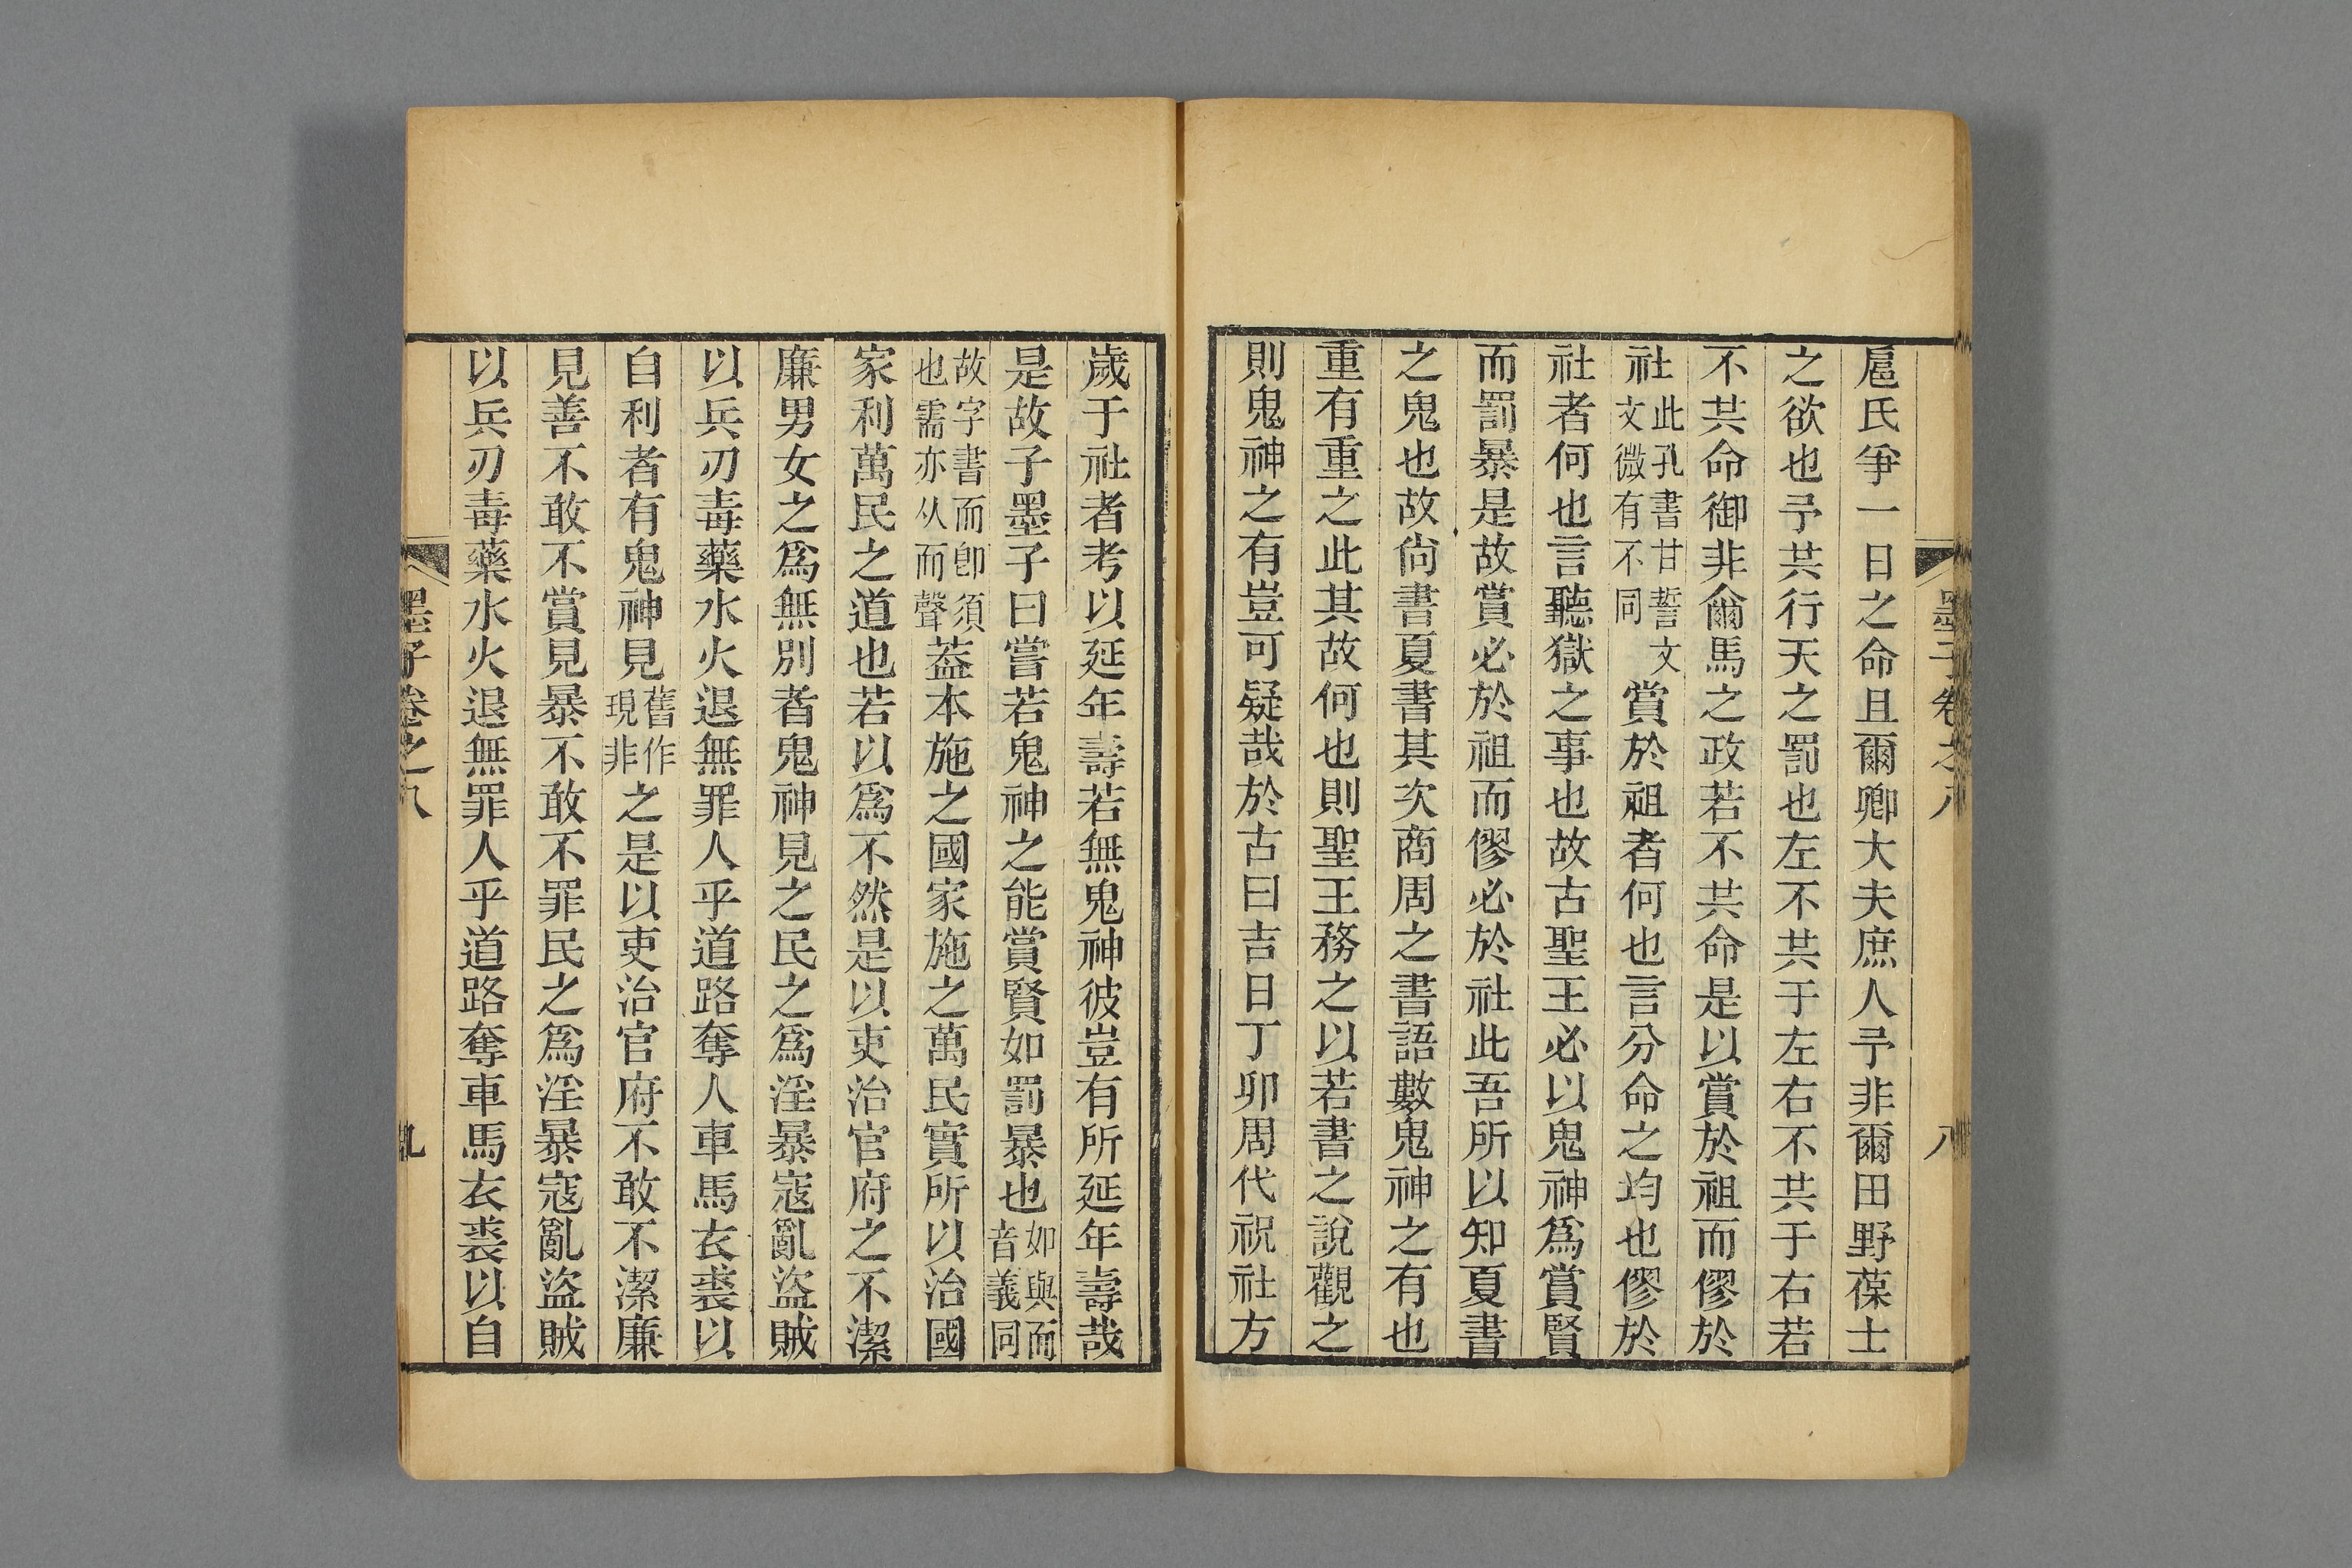 墨子卷之八 八
扈氏爭一日之命且爾卿大夫庶人予非爾田野葆士
之欲也予共行天之罰也左不共于左右不共于右若
不共命御非爾馬之政若不共命是以賞於祖而僇於
社此孔書甘誓文文微有不同賞於祖者何也言分命之均也僇於
社者何也言聽獄之事也故古聖王必以鬼神爲賞賢
而罰暴是故賞必於祖而僇必於社此吾所以知夏書
之鬼也故尙書夏書其次商周之書語數鬼神之有也
重有重之此其故何也則聖王務之以若書之說觀之
則鬼神之有豈可疑哉於古曰吉日丁卯周代祝社方
歲于社者考以延年壽若無鬼神彼豈有所延年壽哉
是故子墨子曰嘗若鬼神之能賞賢如罰暴也如與而音義同
故字書而卽須也需亦从而聲蓋本施之國家施之萬民實所以治國
家利萬民之道也若以爲不然是以吏治官府之不潔
廉男女之爲無別者鬼神見之民之爲淫暴寇亂盜賊
以兵刃毒藥水火退無罪人乎道路奪人車馬衣裘以
自利者有鬼神見舊作現非之是以吏治官府不敢不潔廉
見善不敢不賞見暴不敢不罪民之爲淫暴寇亂盜賊
以兵刃毒藥水火退無罪人乎道路奪車馬衣裘以自
墨子卷之八 九